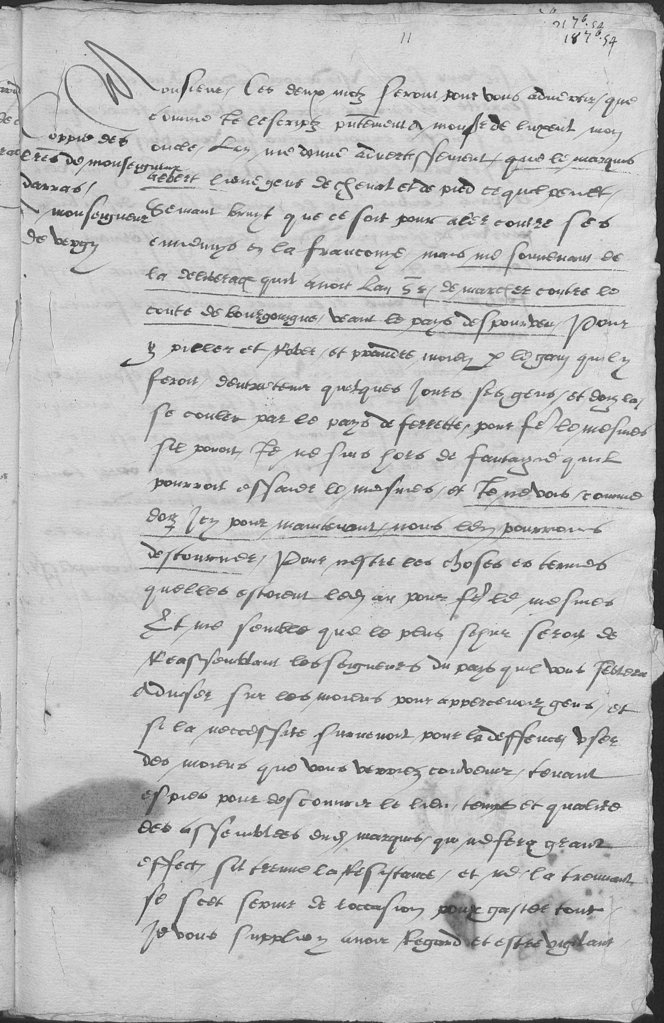 11
2176.54
1876.54
Coppie des
lres de monseigneur
darras /
monseigneur
de vergy
Monsieur, Ces deux motz seront pour vous advertir, que
comme Je lescriptz pntement a monsr de luxeul mon
oncle, Lon me donne advertissement, que le marquis
albert lieve gens de cheval et de pied ce quil peult,
Semant bruyt que ce soit pour aler contre ses
ennemys en la franconye, mais me souvenant de
la deliberaon quil avoit Lan de marcher contre le
conte de bourgongne, veant le pays despourveu, Pour
y piller et Rober, et prandre moien p le gain quil y
feroit, dentretenir quelques Jours ses gens, et doiz la
se couler par le pays de ferrette, pour fe le mesmes
sil pouvoit Je ne suis hors de fantazie quil
pourroit essaier le mesmes, et Je ne vois, comme
doiz Icy pour maintenant, nous len pourrons
destourner, Pour nestre les choses es termes
quelles estoient led an pour fe le mesmes
Et me semble que le plus seur seroit de
Reassemblant les seigneurs du pays quil vous semblera
Adviser sur les moiens pour appercevoir gens, et
si la neccessite survenoit, pour la deffence, user
des moiens que vous verriez convenir, tenant
espies pour descouvrir le lieu, temps et qualite
des assemblees dud marquis, qui ne fera grant
effect, sil treuve la Resistance, et ne la treuvant
se scet servir de loccasion pour gaster tout,
Je vous supplie y avoir Regard et estre vigilant,